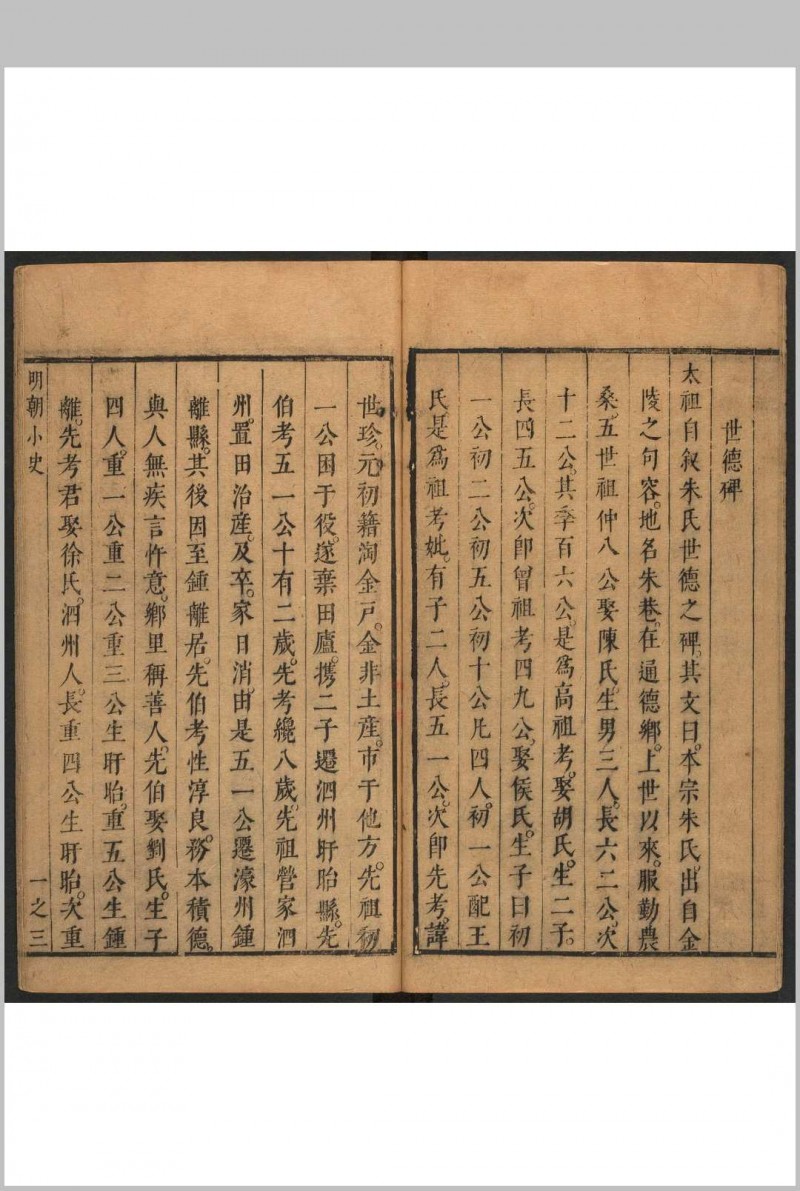 世德碑
太祖自叙朱氏世德之碑。其文曰。本宗朱氏出自金
陵之句容。地名朱巷。在通德鄉。上世以來。服勤農
桑。五世祖仲八公娶陳氏。生男三人。長六二公。次
十二公。其季百六公。是爲高祖考。娶胡氏。生二子。
長四五公。次卽曾祖考四九公。娶侯氏。生子曰初
一公初二公初五公初十公凡四人。初一公配王
氏。是爲祖考妣。有子二人。長五一公。次卽先考。諱
世珍。元初籍淘金戶。金非土產。市于他方。先祖初
一公困于役。遂棄田廬。携二子遷泗州盱眙縣。先
伯考五一公十有二歲。先考纔八歲。先祖營家泗
州。置田治產。及卒。家日消。由是五一公遷濠州鍾
離縣。其後因至鍾離居。先伯考性淳良。務本積德。
與人無疾言忤意。鄉里稱善人。先伯娶劉氏。生子
四人。重一公重二公重三公生盱眙。重五公生鍾
離。先考君娶徐氏。泗州人。長重四公生盱眙。次重
明朝小史
一之三